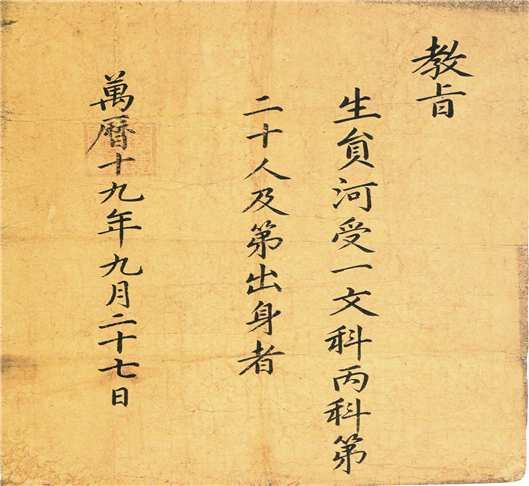 教旨
生貟河受一文科丙科第
二十人及第出身者
萬曆十九年九月二十七日